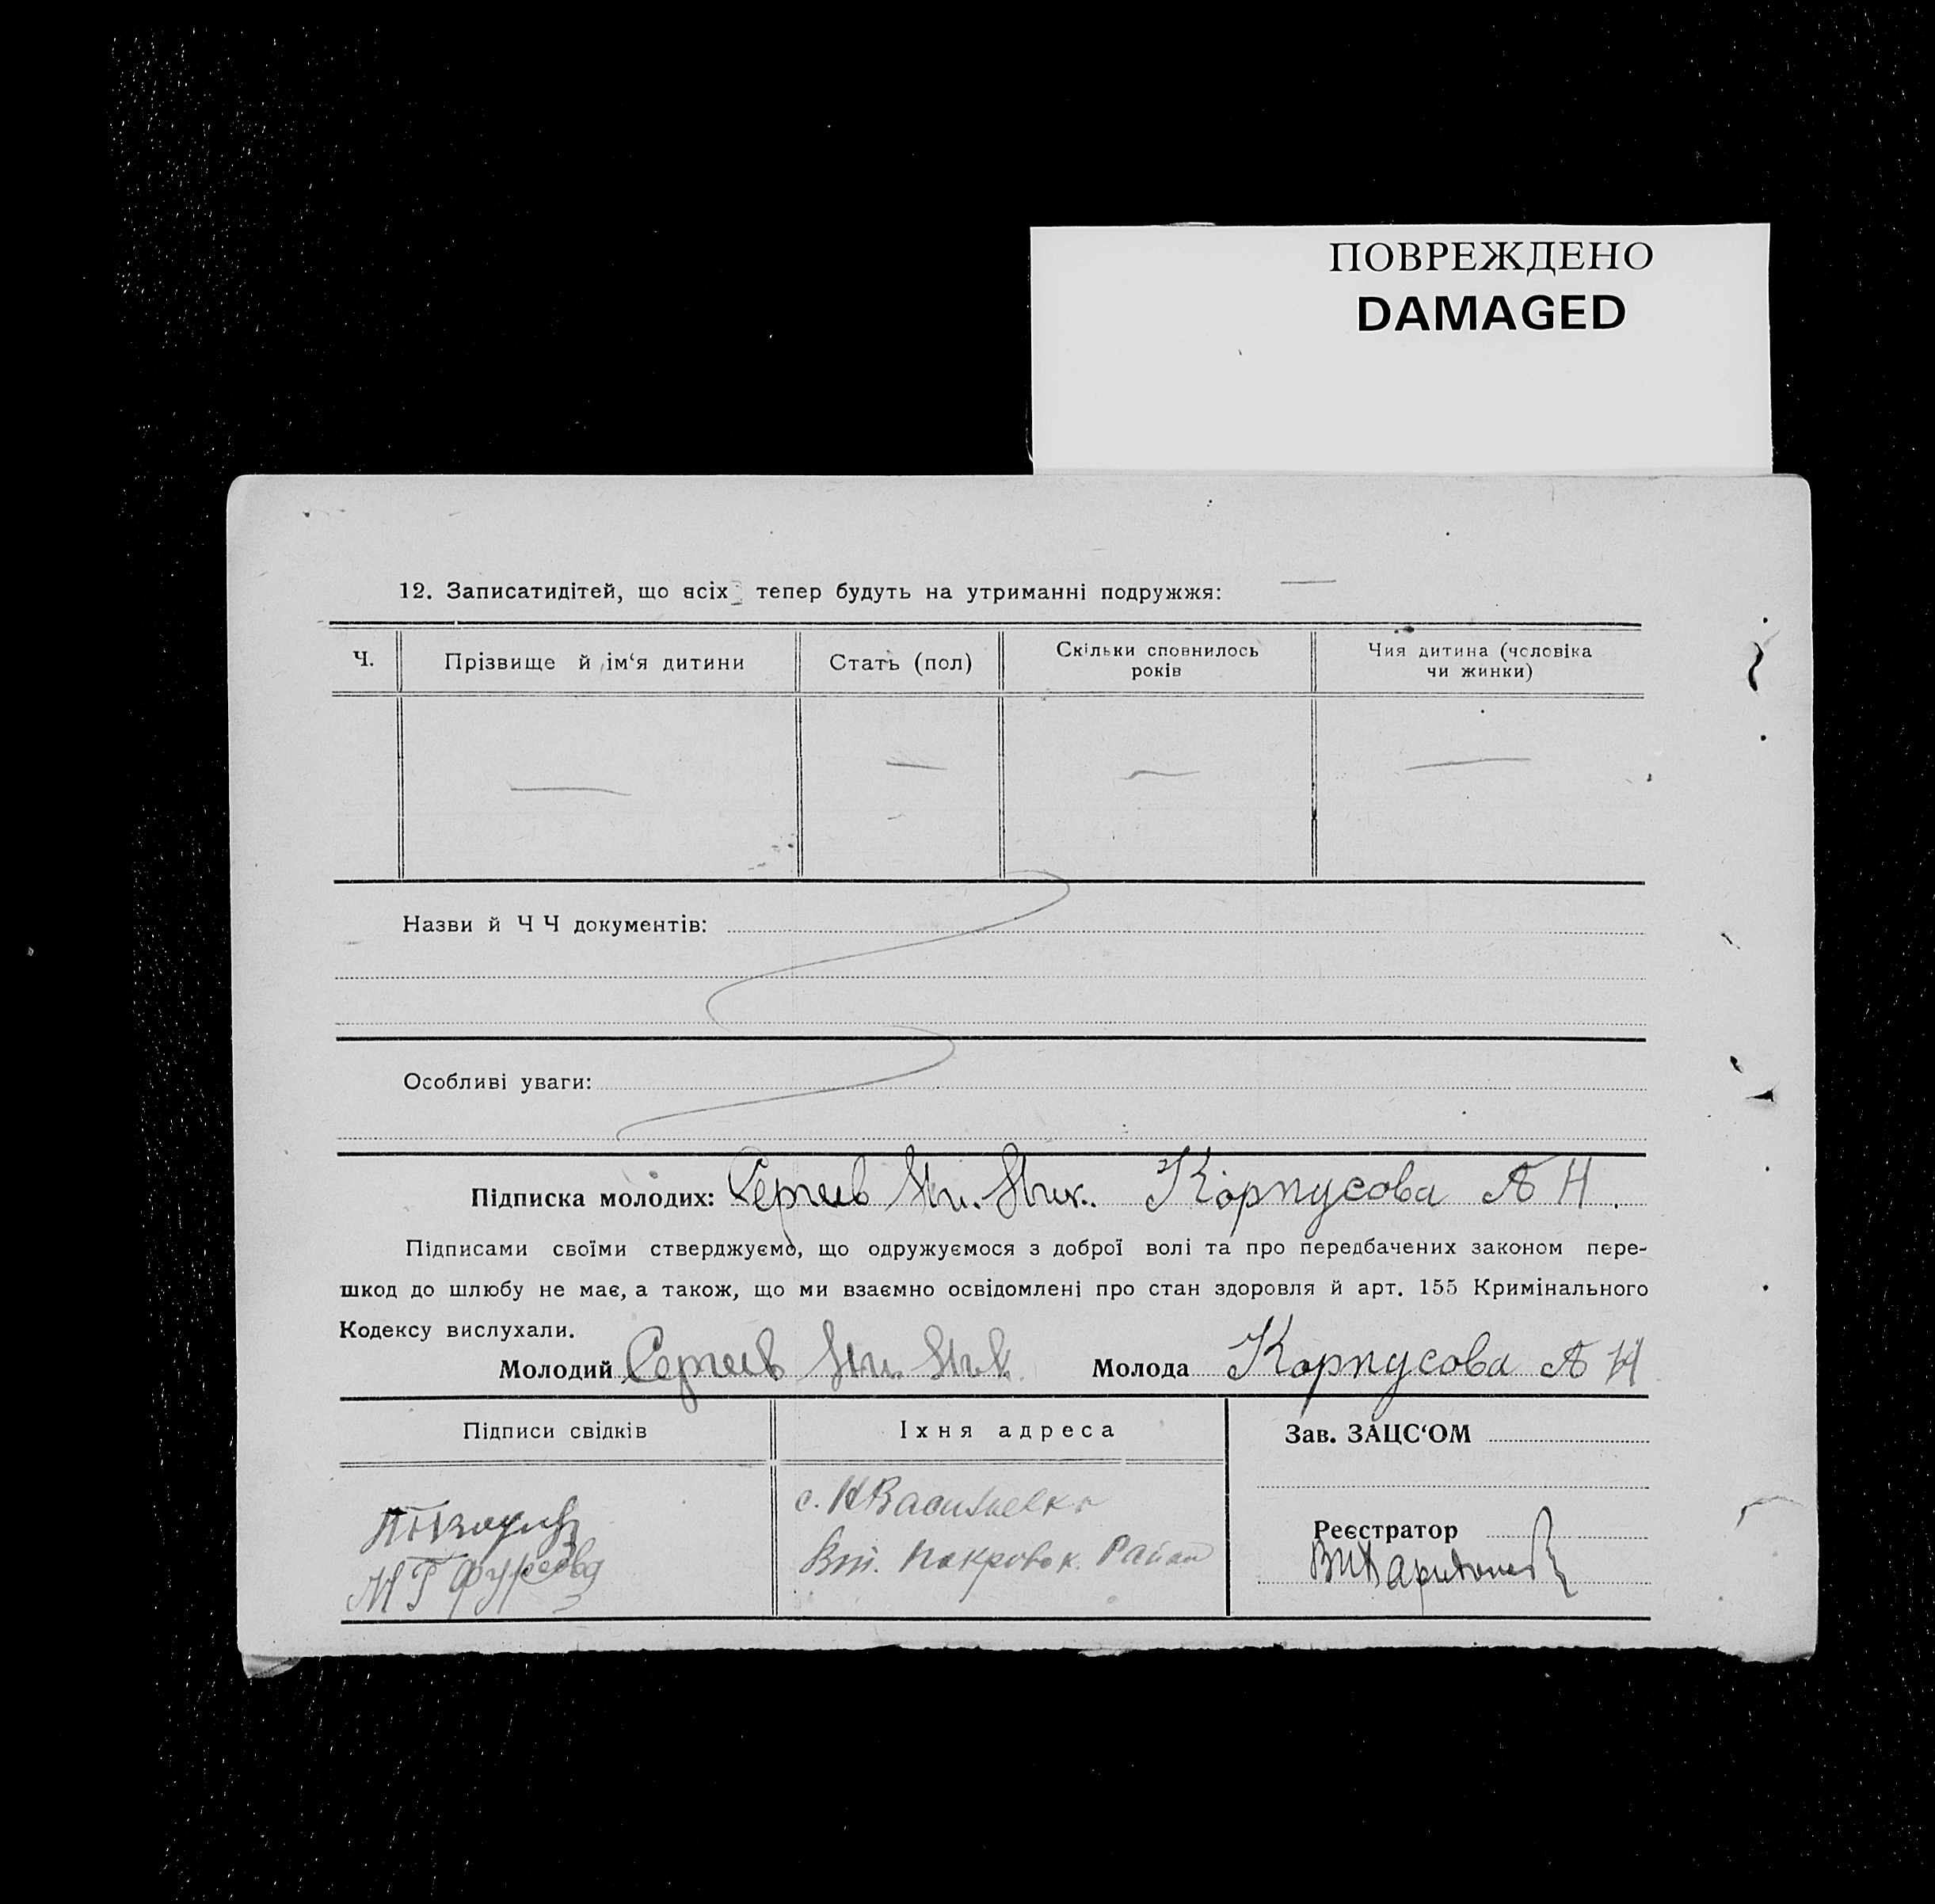 ПОВРЕЖДЕНО
DAMAGED
12. Записатидітей, що всіх тепер будуть на утриманні подружжя: —
Ч.
Прізвище й ім‘я дитини
Стать (пол)
Скільки сповнилось
років
Чия дитина (чоловіка
чи жинки)
— — — —
Назви й Ч Ч документів:
Особливі уваги:
Підписка молодих: Сергеев Ник. Корпусова А Н.
Підписами своїми стверджуємо, що одружуємося з доброї волі та про передбачених законом пере-
шкод до шлюбу не має, а також, що ми взаємно освідомлені про стан здоровля й арт. 155 Кримінального
Кодексу вислухали.
Молодий Сергеев Молода Корпусова А Н
Підписи свідків
Іхня адреса
Зав. ЗАЦС‘ОМ
с. НВасильевка
Покровск. Район
М Г Фурсова
Реєстратор